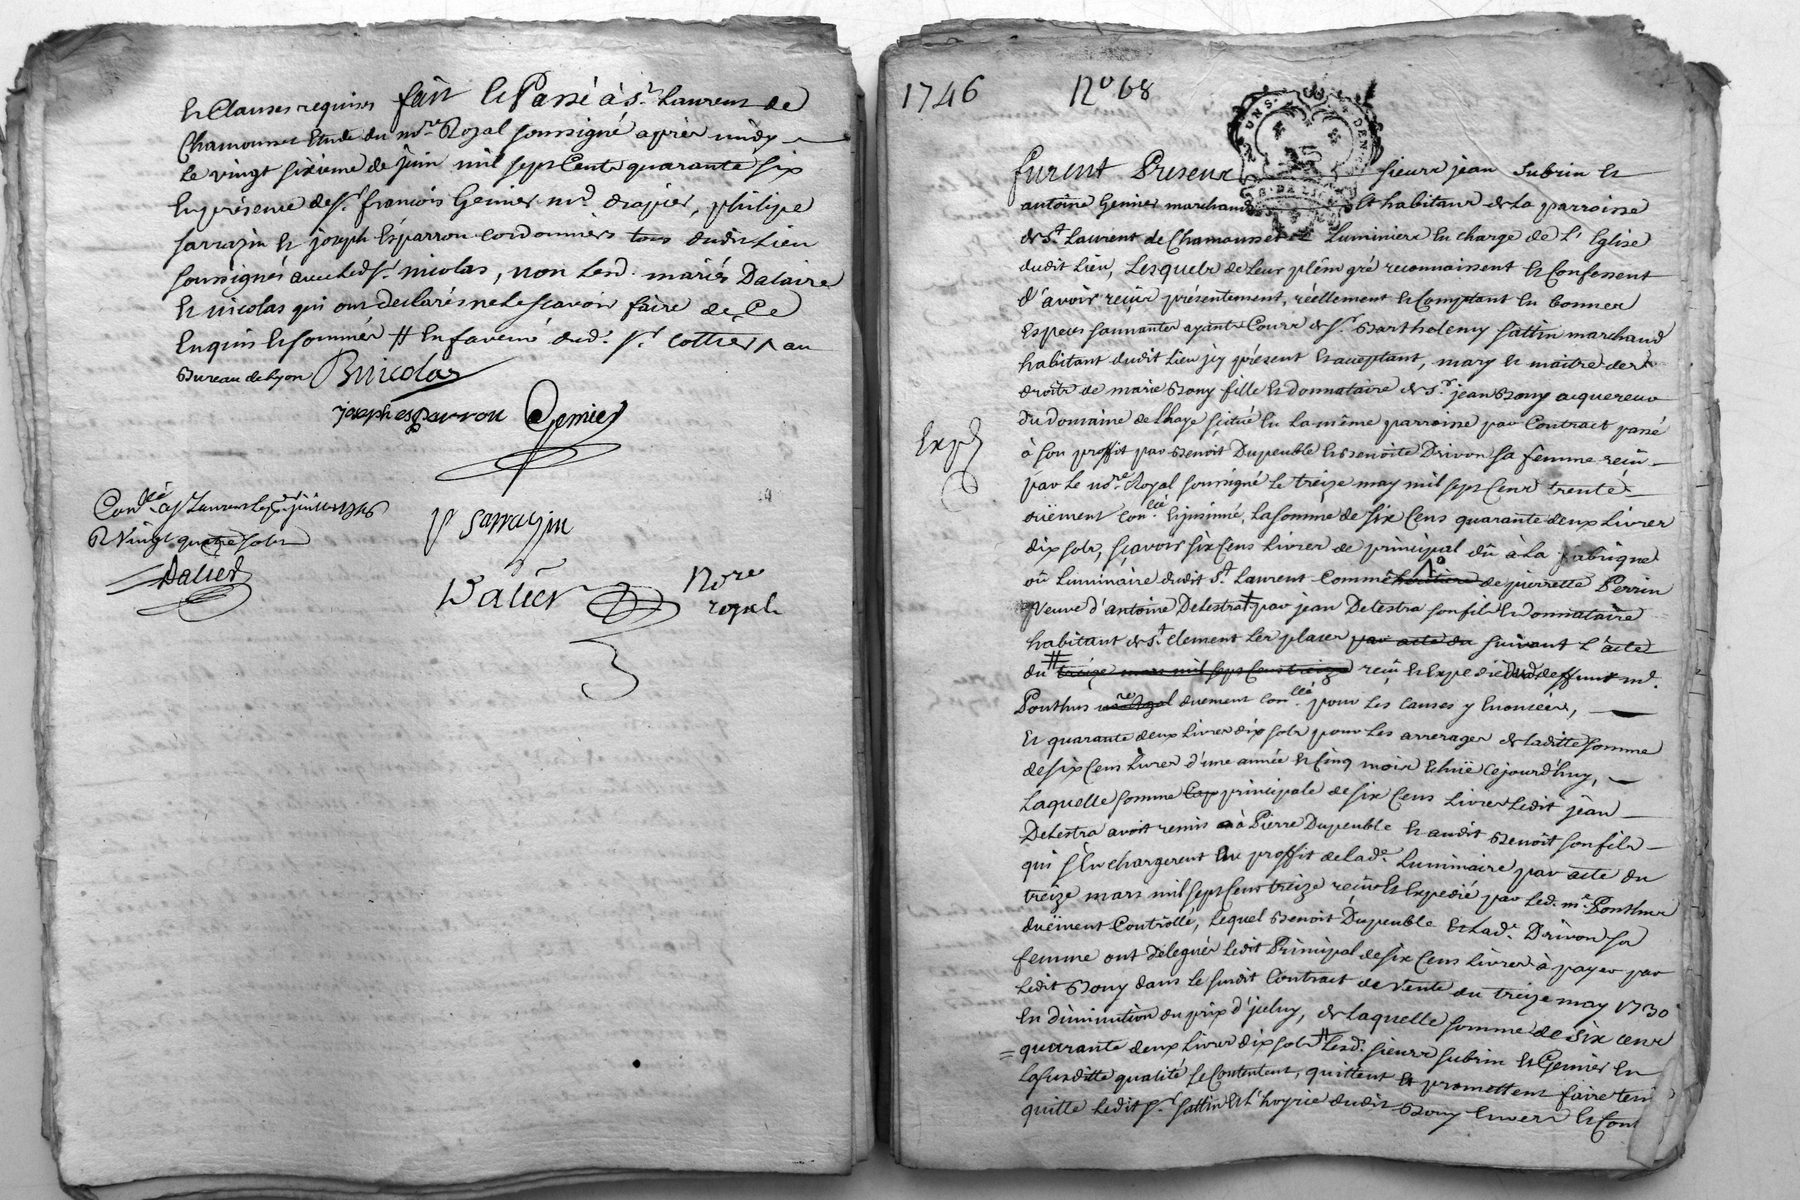 et Clauses requises fait et Passé à St. Laurent de
Chamousset Etude du nore. Royal soussigné après midy
Le vingt sixieme de juin mil sept Cents quarante six
En présence de Sr. françois Genier md. drapier, philipe
sarrazin et joseph Esparron cordonniers tous dudit Lieu
soussignés avec Led. Sr. nicolas, non Lesd. mariés Dalaire
et nicolas qui ont declarés ne Le scavoir faire de Ce
Enquis et sommés # En faveur dud. Sr. Cottier / au
Bureau de Lyon BNicolas
joseph esparron Genier
Conlé. a St Laurent Le juin 1746
R Vingt quatre sols
Dalier
P Sarrazin
Dalier Nore
royal
1746 No 68
furent Presens sieurs jean Subrin et
antoine Genier marchands et habitans de La parroisse
de St. Laurent de Chamousset Luminiers En charge de L'Eglise
dudit Lieu, Lesquels de Leur plein gré reconnoissent et Confessent
d'avoir reçus présentement, réellement et Comptant En bonnes
Especes sonnantes ayants Cours de Sr. Barthelemy fattin marchand
habitant dudit Lieu icy présent et acceptant, mary et maitre des
droits de marie Bony fille et donnataire de Sr. jean Bony acquereur
du domaine de Lhaye scitué En La même parroisse par Contract passé
à son proffit par Benoit Dupeuble et Benoite Drivon sa femme reçû
par Le nore. Royal soussigné Le treize may mil sept Cens trente
duëment Conlé. Et insinué, La somme de six Cens quarante deux Livres
dix sols, sçavoir six Cens Livres de principal dû à La fabrique
où Luminaire dudit St. Laurent Comme heritiere de pierrette Perrin
Veuve d'antoine Delestra # par jean Delestra son fils et donnataire
habitant de St. Clement Les places par acte du suivant L'acte
du # treize mars mil sept Cens treize reçû et Expedié dud. deffunt me.
Ponthus nore Royal duement Conlé. pour Les causes y Enoncées,
Et quarante deux Livres dix sols pour Les arrerages de Laditte somme
de six Cens Livres d'une année et Cinq mois Echüe Cejourd'huy,
Laquelle somme Cap principale de six Cens Livres Ledit jean
Delestra avoit remis à Pierre Dupeuble et audit Benoit son fils
qui s'En chargerent au proffit de Lade. Luminaire par acte du
treize mars mil sept Cens treize reçû et Expedié par Led. me. Ponthus
duëment Controllé, Lequel Benoit Dupeuble et Lade. Drivon sa
femme ont délegués Ledit Principal de six Cens Livres à payer par
Ledit Bony dans Le susdit Contract de Vente du treize may 1730
En diminution du prix d'jceluy, de Laquelle somme de six cens
= quarante deux Livres dix sols # Lesd. sieurs Subrin et Genier En
La susditte qualité se Contentent, quittent et promettent faire tenir
quitte Ledit Sr. fattin et L'hoyrie dudit Bony Envers et Cont
Expd